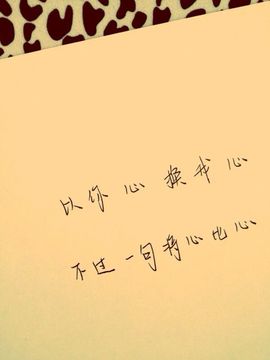 以你心换我心
不过一句将心比心